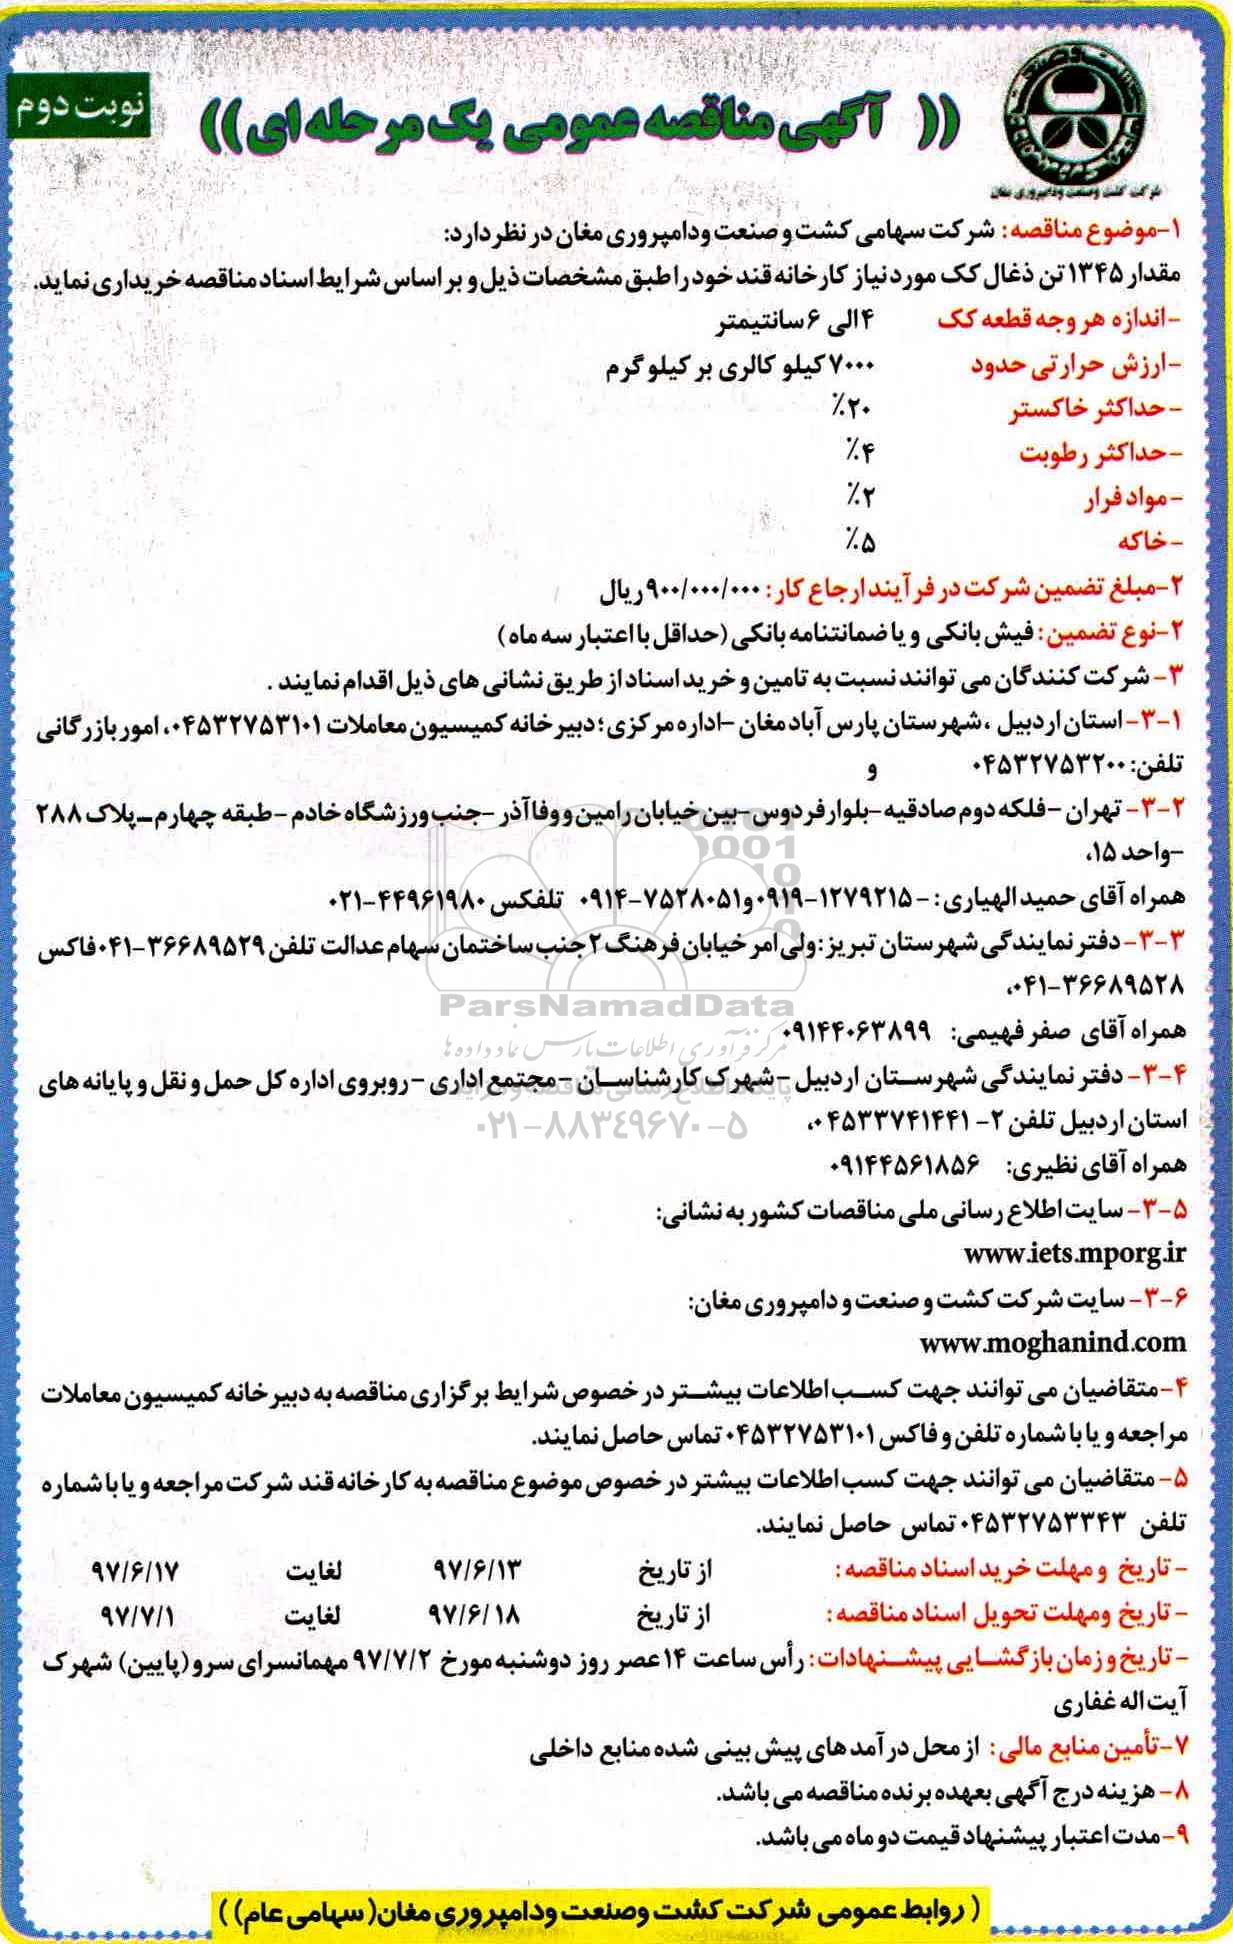 شرکت کشت وصنعت ودامپروری مغان
نوبت دوم
(( آگهی مناقصه عمومی یک مرحله ای))
۱-موضوع مناقصه: شرکت سهامی کشت و صنعت ودامپروری مغان در نظر دارد:
مقدار ۱۳۴۵ تن ذغال کک مورد نیاز کارخانه قند خود را طبق مشخصات ذیل و بر اساس شرایط اسناد مناقصه خریداری نماید.
-اندازه هر وجه قطعه کک ۴الی ۶سانتیمتر
-ارزش حرارتی حدود ۷۰۰۰کیلو کالری بر کیلوگرم
-حداکثر خاکستر ۲۰٪
-حداکثر رطوبت ۴٪
-مواد فرار ۲٪
-خاکه ۵٪
۲-مبلغ تضمین شرکت در فرآیند ارجاع کار: ۹۰۰/۰۰۰/۰۰۰ریال
۲-نوع تضمین: فیش بانکی و یا ضمانتنامه بانکی (حداقل با اعتبار سه ماه)
۳- شرکت کنندگان می توانند نسبت به تامین و خرید اسناد از طریق نشانی های ذیل اقدام نمایند .
۳-۱- استان اردبیل ،شهرستان پارس آباد مغان -اداره مرکزی ؛دبیرخانه کمیسیون معاملات ۰۴۵۳۲۷۵۳۱۰۱، امور بازرگانی
تلفن: ۰۴۵۳۲۷۵۳۲۰۰ و
۳-۲- تهران -فلکه دوم صادقیه -بلوار فردوس-بین خیابان رامین و وفا آذر -جنب ورزشگاه خادم -طبقه چهارم-پلاک ۲۸۸
-واحد ۱۵،
همراه آقای حمید الهیاری: -۰۹۱۹-۱۲۷۹۲۱۵و۰۹۱۴-۷۵۲۸۰۵۱ تلفکس ۰۲۱-۴۴۹۶۱۹۸۰
۳-۳- دفتر نمایندگی شهرستان تبریز :ولی امر خیابان فرهنگ ۲ جنب ساختمان سهام عدالت تلفن ۰۴۱-۳۶۶۸۹۵۲۹فاکس
۰۴۱-۳۶۶۸۹۵۲۸،
همراه آقای صفر فهیمی: ۰۹۱۴۴۰۶۳۸۹۹
۳-۴- دفتر نمایندگی شهرستان اردبیل -شهرک کارشناسان -مجتمع اداری -روبروی اداره کل حمل و نقل و پایانه های
استان اردبیل تلفن ۲- ۰۴۵۳۳۷۴۱۴۴۱،
همراه آقای نظیری: ۰۹۱۴۴۵۶۱۸۵۶
۳-۵- سایت اطلاع رسانی ملی مناقصات کشور به نشانی:
www.iets.mporg.ir
۳-۶- سایت شرکت کشت و صنعت و دامپروری مغان:
www.moghanind.com
۴-متقاضیان می توانند جهت کسب اطلاعات بیشتر در خصوص شرایط برگزاری مناقصه به دبیرخانه کمیسیون معاملات
مراجعه و یا با شماره تلفن و فاکس ۰۴۵۳۲۷۵۳۱۰۱ تماس حاصل نمایند.
۵- متقاضیان می توانند جهت کسب اطلاعات بیشتر در خصوص موضوع مناقصه به کارخانه قند شرکت مراجعه و یا با شماره
تلفن ۰۴۵۳۲۷۵۳۳۴۳ تماس حاصل نمایند.
- تاریخ و مهلت خرید اسناد مناقصه: از تاریخ ۹۷/۶/۱۳ لغایت ۹۷/۶/۱۷
- تاریخ ومهلت تحویل اسناد مناقصه: از تاریخ ۹۷/۶/۱۸ لغایت ۹۷/۷/۱
- تاریخ و زمان بازگشایی پیشنهادات: رأس ساعت ۱۴ عصر روز دوشنبه مورخ ۹۷/۷/۲ مهمانسرای سرو(پایین) شهرک
آیت اله غفاری
۷-تأمین منابع مالی: از محل درآمدهای پیش بینی شده منابع داخلی
۸- هزینه درج آگهی بعهده برنده مناقصه می باشد.
۹-مدت اعتبار پیشنهاد قیمت دو ماه می باشد.
( روابط عمومی شرکت کشت وصنعت ودامپروری مغان(سهامی عام) )
ParsNamadData
مرکز فرآوری اطلاعات پارس نماد داده ها
پایگاه اطلاع رسانی مناقصه و مزایده
۰۲۱-۸۸۳۴۹۶۷۰-۵